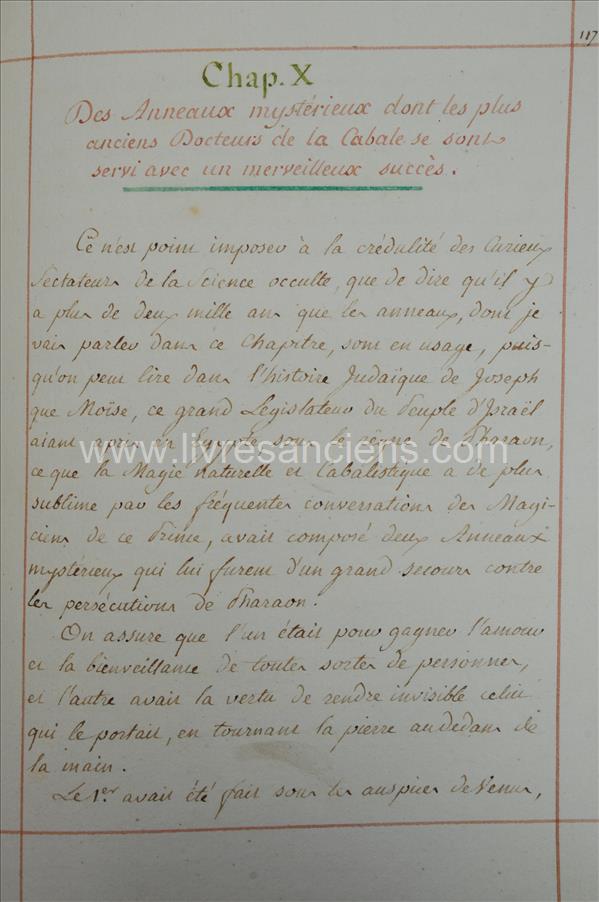 117
Chap. X
Des Anneaux mystérieux dont les plus
anciens Docteurs de la Cabale se sont
servi avec un merveilleux succès.
Ce n'est point imposer à la crédulité des Curieux
Sectateurs de la Science occulte, que de dire qu'il y
a plus de deux mille ans que les anneaux, dont je
vais parler dans ce Chapitre, sont en usage, puis-
qu'on peut lire dans l'histoire Judaïque de Joseph
que Moïse, ce grand Législateur du Peuple d'Israël
aiant apris en Egypte, sous le règne de Pharaon,
www.livresanciens.com
ce que la Magie naturelle et Cabalistique a de plus
sublime par les fréquentes conversations des Magi-
ciens de ce Prince, avait composé deux Anneaux
mystérieux qui lui furent d'un grand secours contre
les persécutions de Pharaon.
On assure que l'un était pour gagner l'amour
et la bienveillance de toutes sortes de personnes,
et l'autre avait la vertu de rendre invisible celui
qui le portait, en tournant la pierre au dedans de
la main.
Le 1.er avait été fait sous les auspices de Venus,